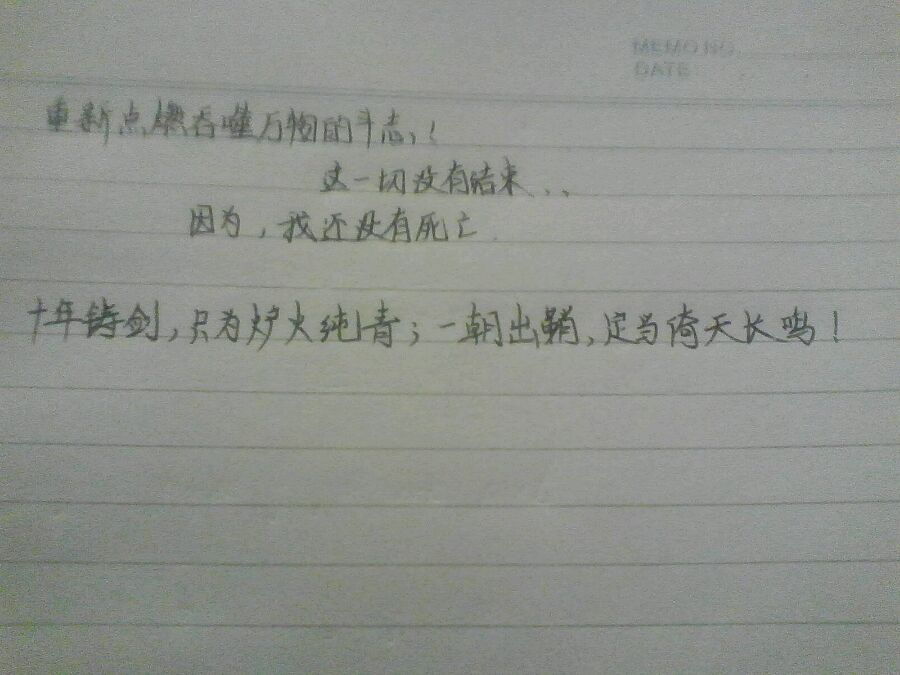 MEMO NO.
DATE
重新点燃吞噬万物的斗志,!
这一切没有结束...
因为,我还没有死亡
十年铸剑,只为炉火纯青;一朝出鞘,定当倚天长鸣!